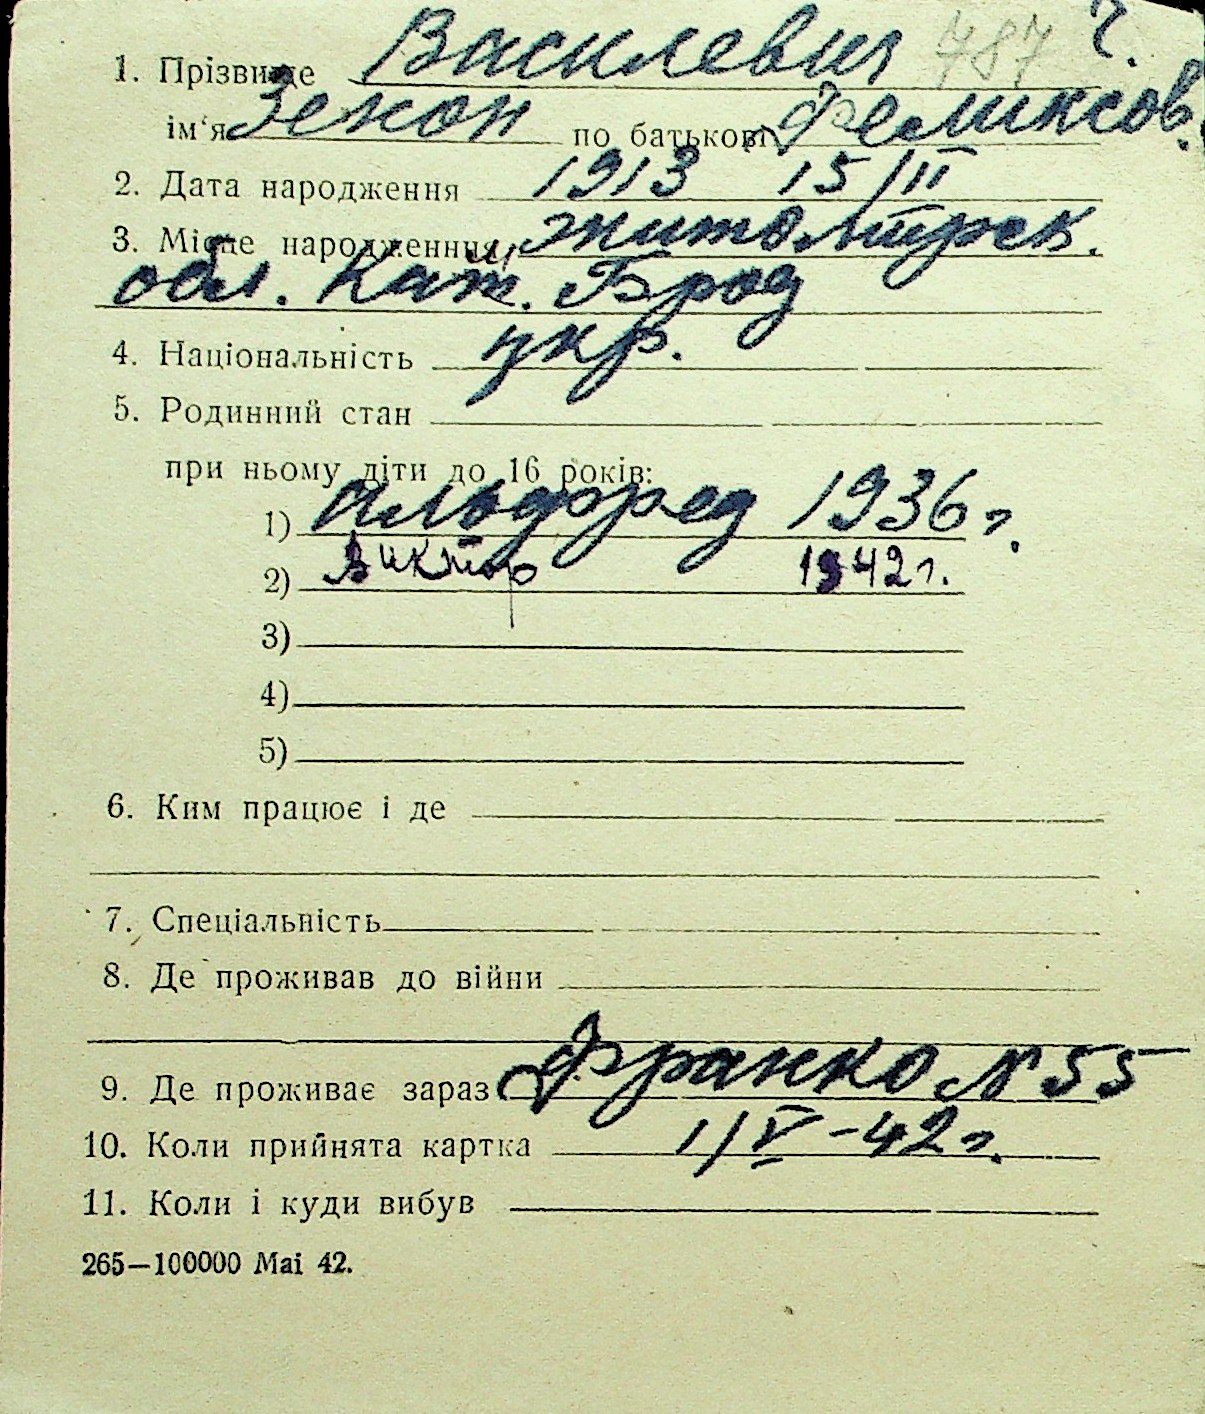 787 Ч.
1. Прізвище Василевич
ім'я Зенон по батькові Феликсов.
2. Дата народження 1913 15/II
3. Місце народженння Житомирск.
обл. Кам. Брод
4. Національність укр.
5. Родинний стан
при ньому діти до 16 років:
1) Альфред 1936 г.
2) Виктор 1942 г.
3)
4)
5)
6. Ким працює і де
7. Спеціальність
8. Де проживав до війни
9. Де проживає зараз Франко № 55
10. Коли прийнята картка 1/V-42 г.
11. Коли і куди вибув
265—100000 Mai 42.